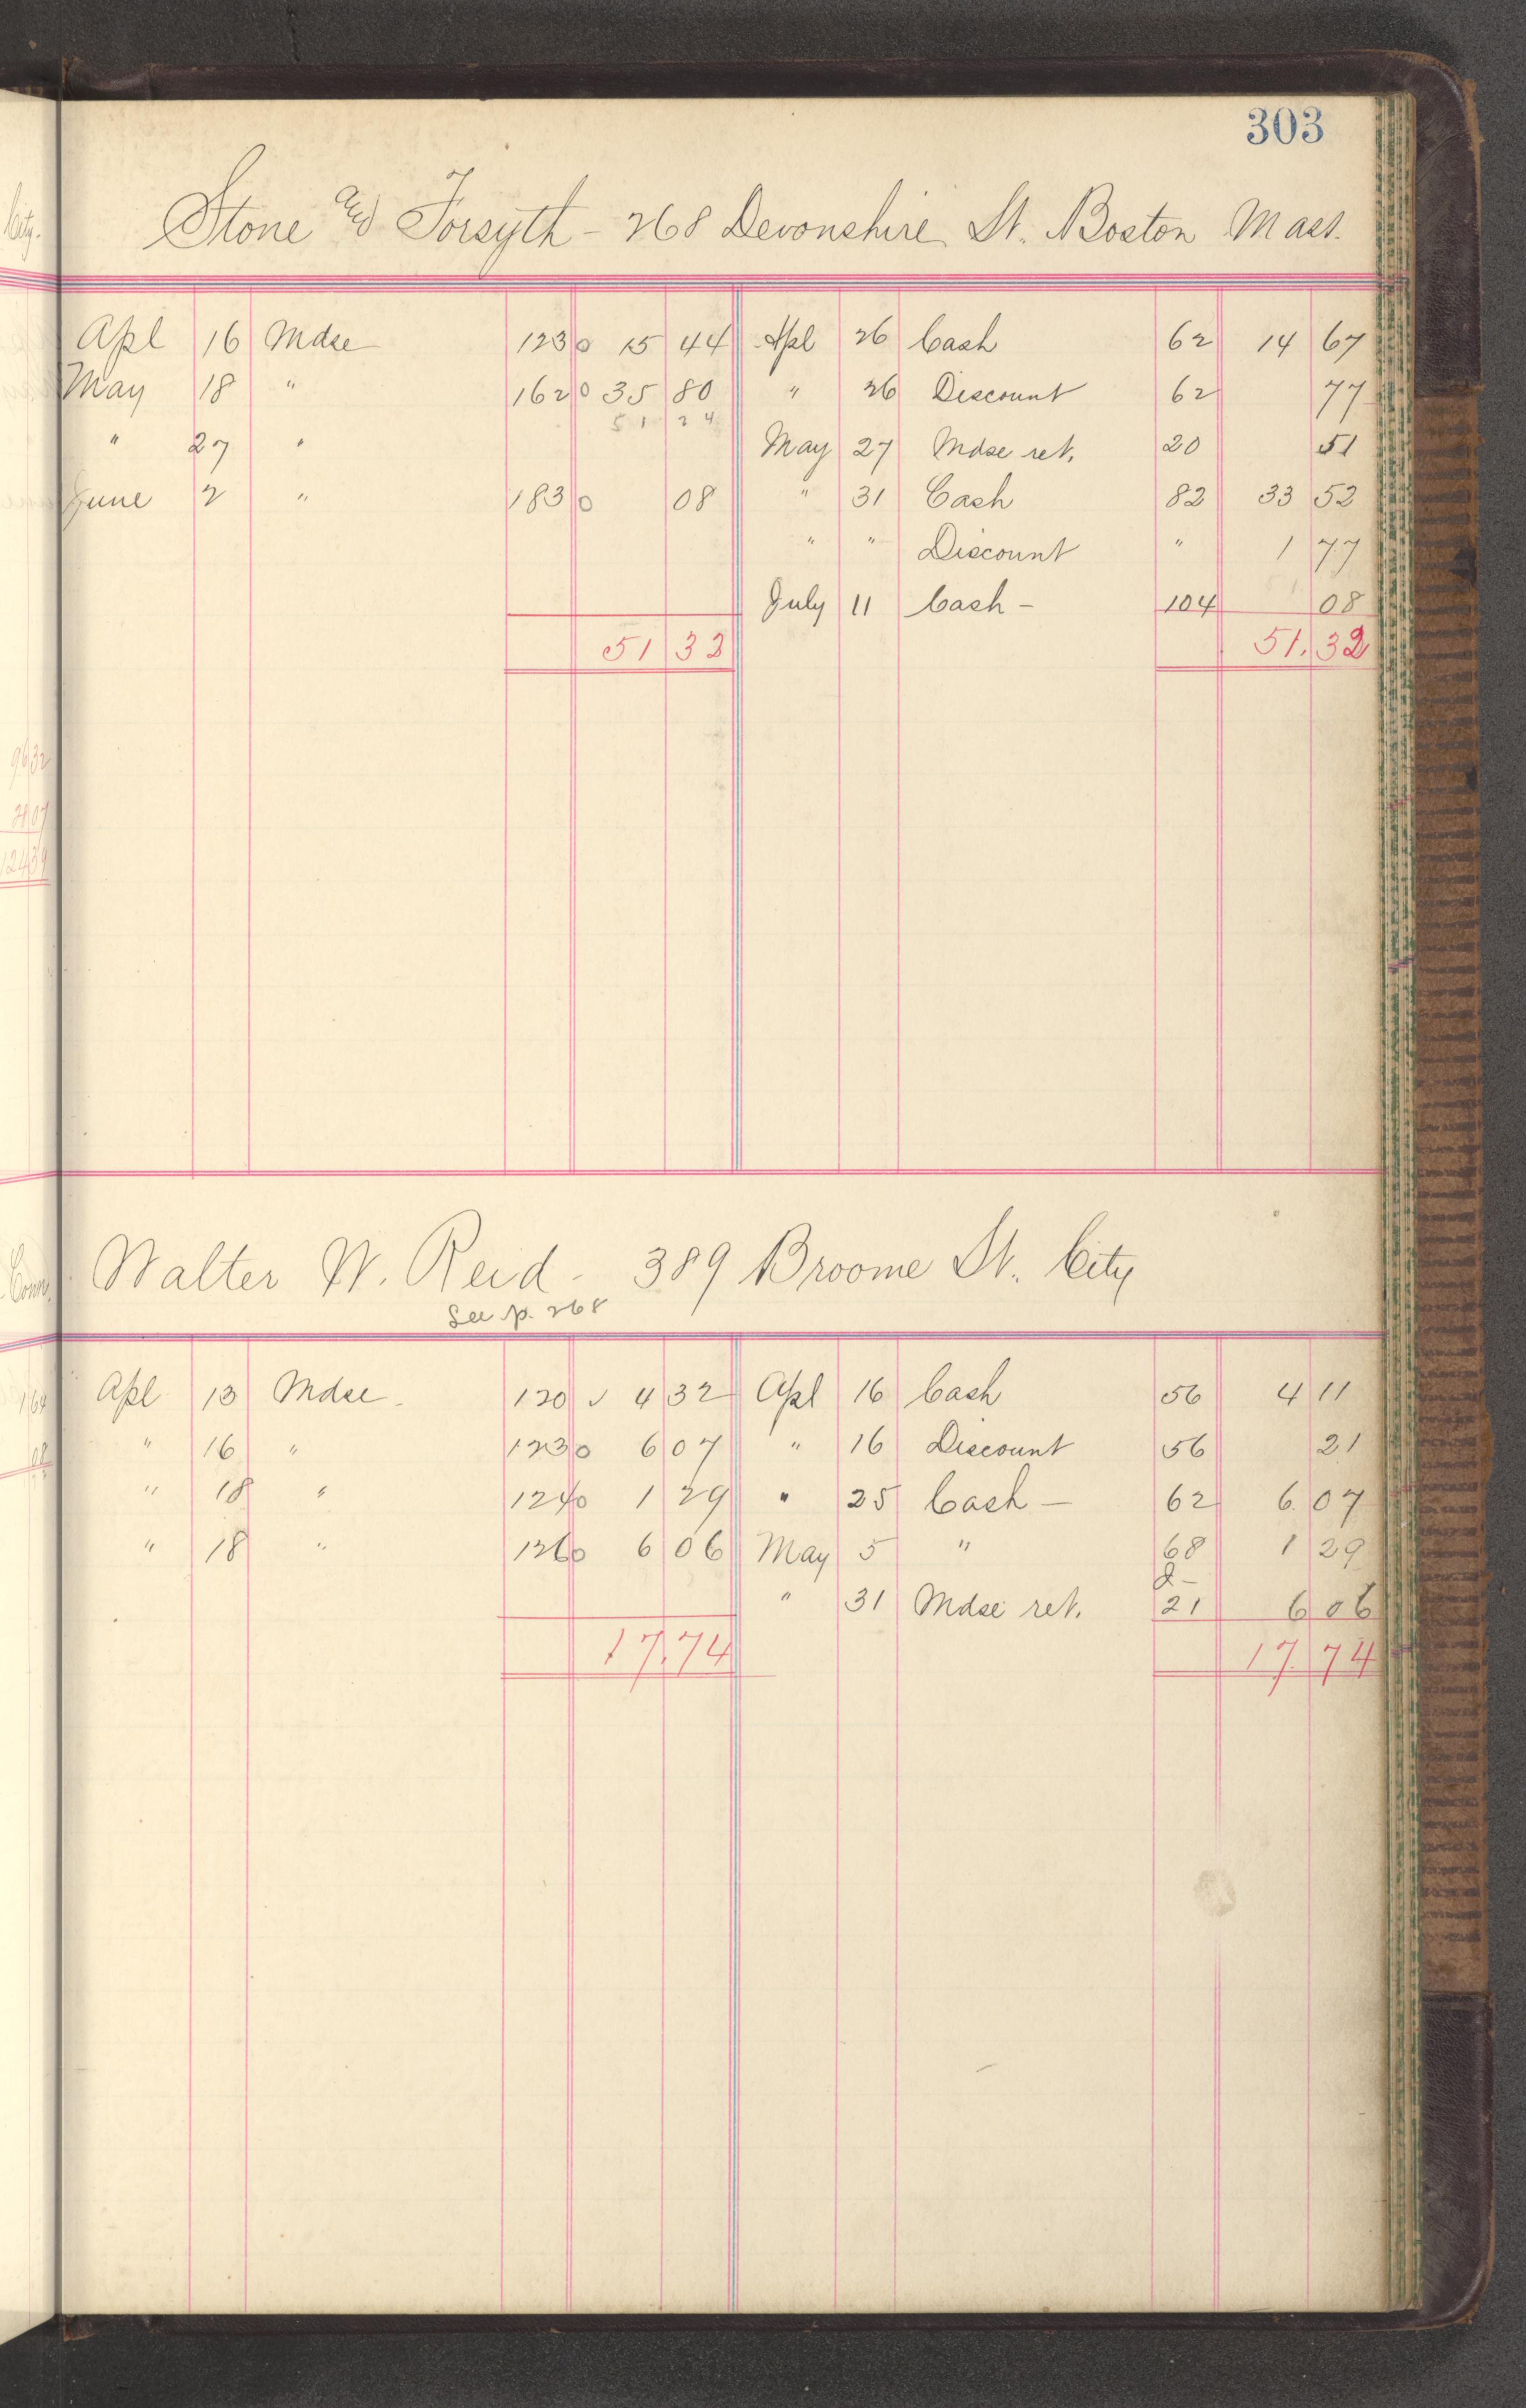 303
Stone and Forsyth - 268 Devonshire St. Boston Mass.
Apl 16 Mdse 123 0 15 44 Apl 26 Cash 62 14 67
May 18 " 162 0 35 80 " 26 Discount 62 77
51 24
" 27 " May 27 Mdse ret. 20 51
June 2 " 183 0 08 " 31 Cash 82 33 52
" " Discount " 1 77
July 11 Cash - 104 08
51 32 51.32
Walter W. Reid - 389 Broome St. City
See p. 268
Apl 13 Mdse 120 ✓ 4 32 Apl 16 Cash 56 4 11
" 16 " 123 0 6 07 " 16 Discount 56 21
" 18 " 124 0 1 29 " 25 Cash - 62 6 07
" 18 " 126 0 6 06 May 5 " 68 1 29
" 31 Mdse ret. 21 6 06
17.74 17.74
City.
96 32
124 39
Conn.
1 64
08